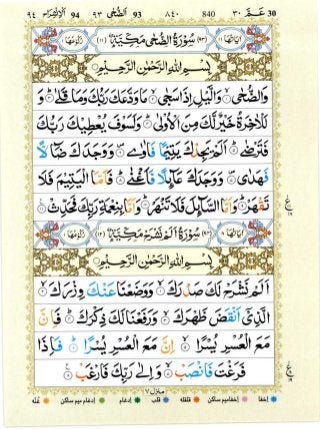 ٩٤ الانشراح 94 ٩٣ الضحى 93 ٨٤٠ 840 ٣٠ عم 30
اٰیاتها ١١ (٩٣) سُوْرَةُ الضُّحٰی مَكِّيَّةٌ (١١) رُكُوعُهَا ١
بِسْمِ اللّٰهِ الرَّحْمٰنِ الرَّحِيْمِ
وَالضُّحٰى ۙ وَالَّيْلِ اِذَا سَجٰى ۙ مَا وَدَّعَكَ رَبُّكَ وَمَا قَلٰى ؕ وَ
لَلْاٰخِرَةُ خَيْرٌ لَّكَ مِنَ الْاُوْلٰى ؕ وَلَسَوْفَ يُعْطِيْكَ رَبُّكَ
فَتَرْضٰى ؕ اَلَمْ يَجِدْكَ يَتِيْمًا فَاٰوٰى ۪ وَوَجَدَكَ ضَآلًّا
فَهَدٰى ۪ وَوَجَدَكَ عَآئِلًا فَاَغْنٰى ؕ فَاَمَّا الْيَتِيْمَ فَلَا
تَقْهَرْ ؕ وَاَمَّا السَّآئِلَ فَلَا تَنْهَرْ ؕ وَاَمَّا بِنِعْمَةِ رَبِّكَ فَحَدِّثْ
اٰیاتها ٨ (٩٤) سُوْرَةُ اَلَمْ نَشْرَحْ مَكِّيَّةٌ (١٢) رُكُوعُهَا ١
بِسْمِ اللّٰهِ الرَّحْمٰنِ الرَّحِيْمِ
اَلَمْ نَشْرَحْ لَكَ صَدْرَكَ ۙ وَوَضَعْنَا عَنْكَ وِزْرَكَ ۙ
الَّذِيْۤ اَنْقَضَ ظَهْرَكَ ۙ وَرَفَعْنَا لَكَ ذِكْرَكَ ؕ فَاِنَّ
مَعَ الْعُسْرِ يُسْرًا ۙ اِنَّ مَعَ الْعُسْرِ يُسْرًا ؕ فَاِذَا
فَرَغْتَ فَانْصَبْ ۙ وَاِلٰى رَبِّكَ فَارْغَبْ
منزل ٧
اخفا اخفا میم ساکن قلقله قلب ادغام ادغام میم ساکن غنه